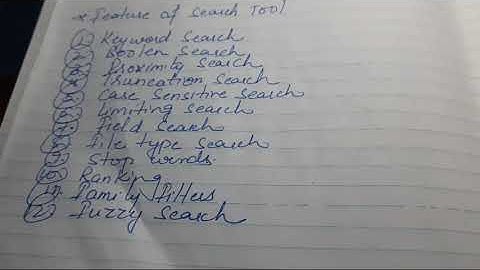 * Feature of Search Tool
1 Keyword Search
2 Boolen Search
3 Proximity Search
4 Truncation Search
5 Case Sensitive Search
6 Limiting Search
7 Field Search
8 File type Search
9 Stop words.
10 Ranking
11 Family Filters
12 Fuzzy Search